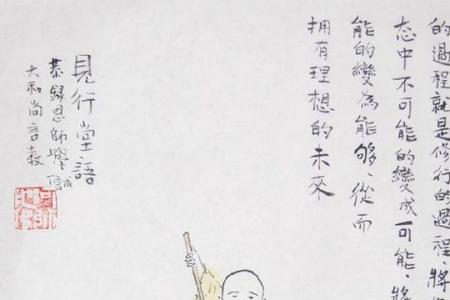 的過程就是修行的過程、將
态中不可能的變成可能、將
能的變為能够、從而
擁有理想的未來
見行堂語
恭録恩師學誠
大和尚言教